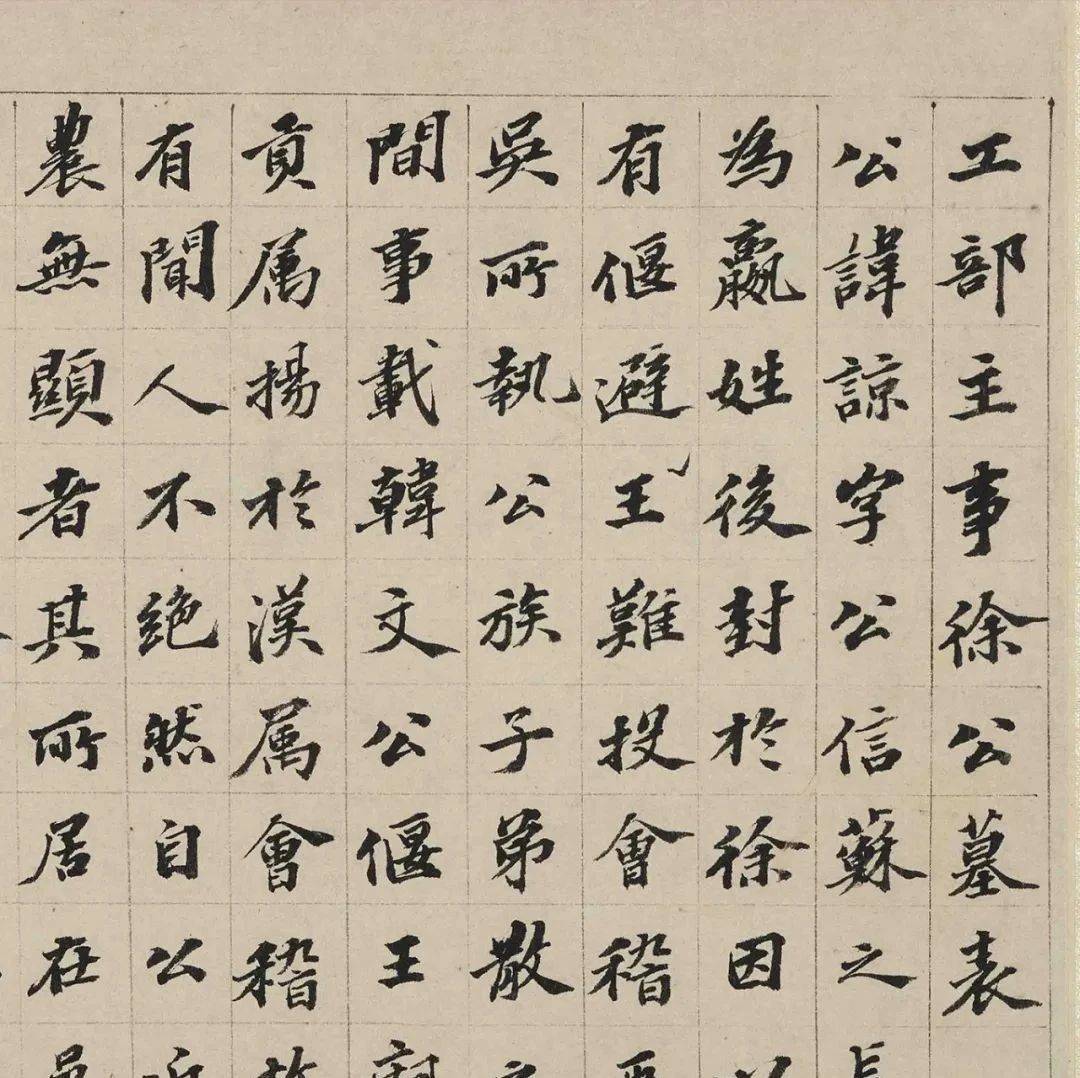 工部主事徐公墓表
公諱諒字公信蘇之長
為嬴姓後封於徐因
有偃避王難投會稽
吳所執公族子弟散
間事載韓文公偃王廟
貢属揚於漢属會稽
有聞人不絕然自公
農無顯者其所居在